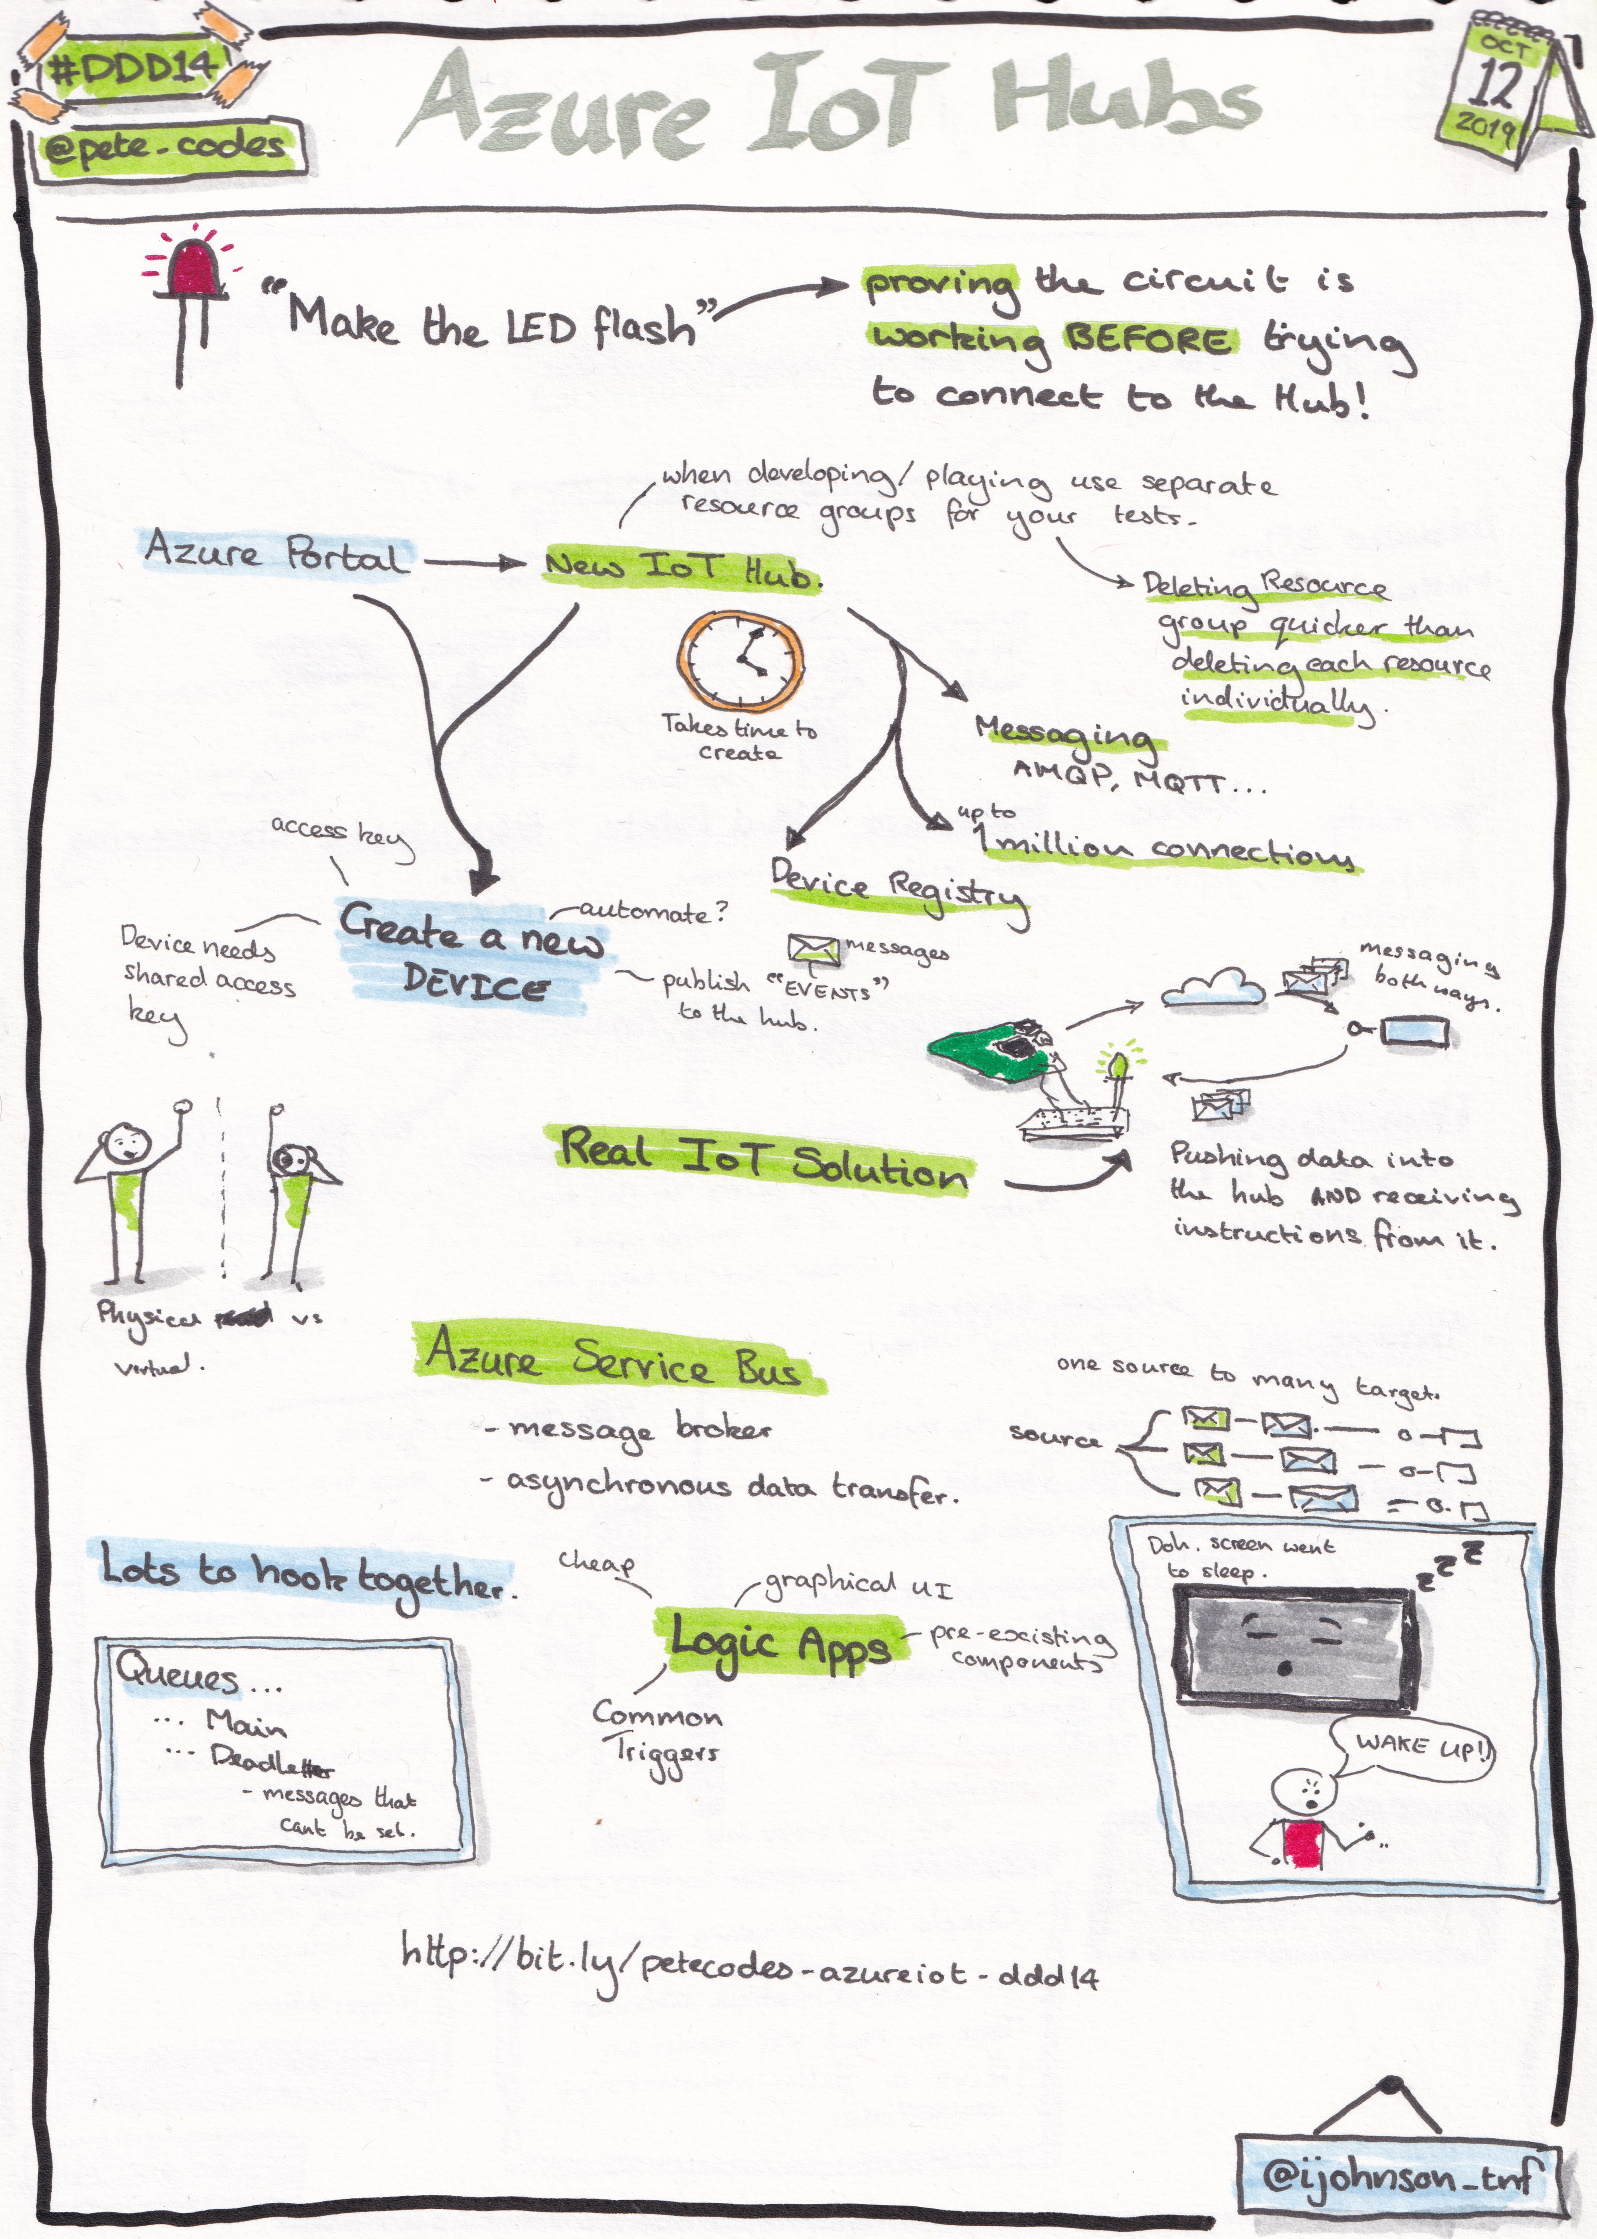 #DDD14
@pete_codes
Azure IoT Hubs
OCT
12
2019
"Make the LED flash"
proving the circuit is
working BEFORE trying
to connect to the Hub!
when developing/playing use separate
resource groups for your tests.
Azure Portal
New IoT Hub.
Deleting Resource
group quicker than
deleting each resource
individually.
Takes time to
create
Messaging
AMQP, MQTT...
up to
1 million connections
Device Registry
access key
Create a new
DEVICE
automate?
Device needs
shared access
key
messages
publish "EVENTS"
to the hub.
messaging
both ways.
Real IoT Solution
Pushing data into
the hub AND receiving
instructions from it.
Physical vs
virtual.
Azure Service Bus
- message broker
- asynchronous data transfer.
one source to many target.
source
Lots to hook together.
Queues...
... Main
... Deadletter
- messages that
cant be set.
cheap
graphical UI
Logic Apps
pre-existing
components
Common
Triggers
Doh. screen went
to sleep.
z z z
WAKE UP!!
http://bit.ly/petecodes-azureiot-ddd14
@ijohnson_tnf